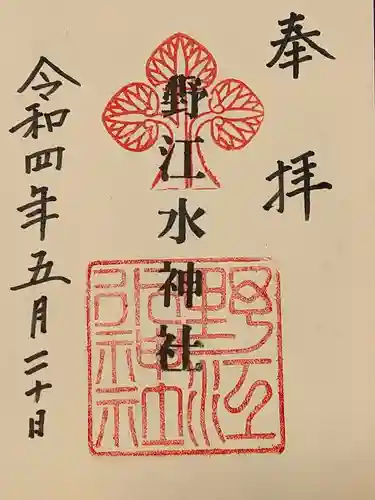 奉拝
野江水神社
野江
水神社
令和四年五月二十日